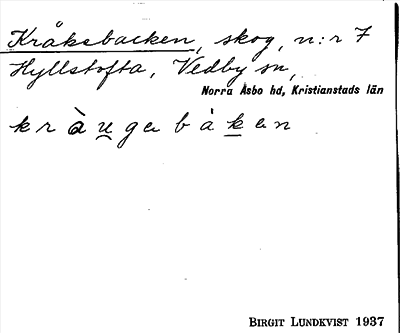 Kråksbacken, skog, n:r 7
Hyllstofta, Vedby sn,
Norra Åsbo hd, Kristianstads län
kràu̯gabàkan
BIRGIT LUNDKVIST 1937